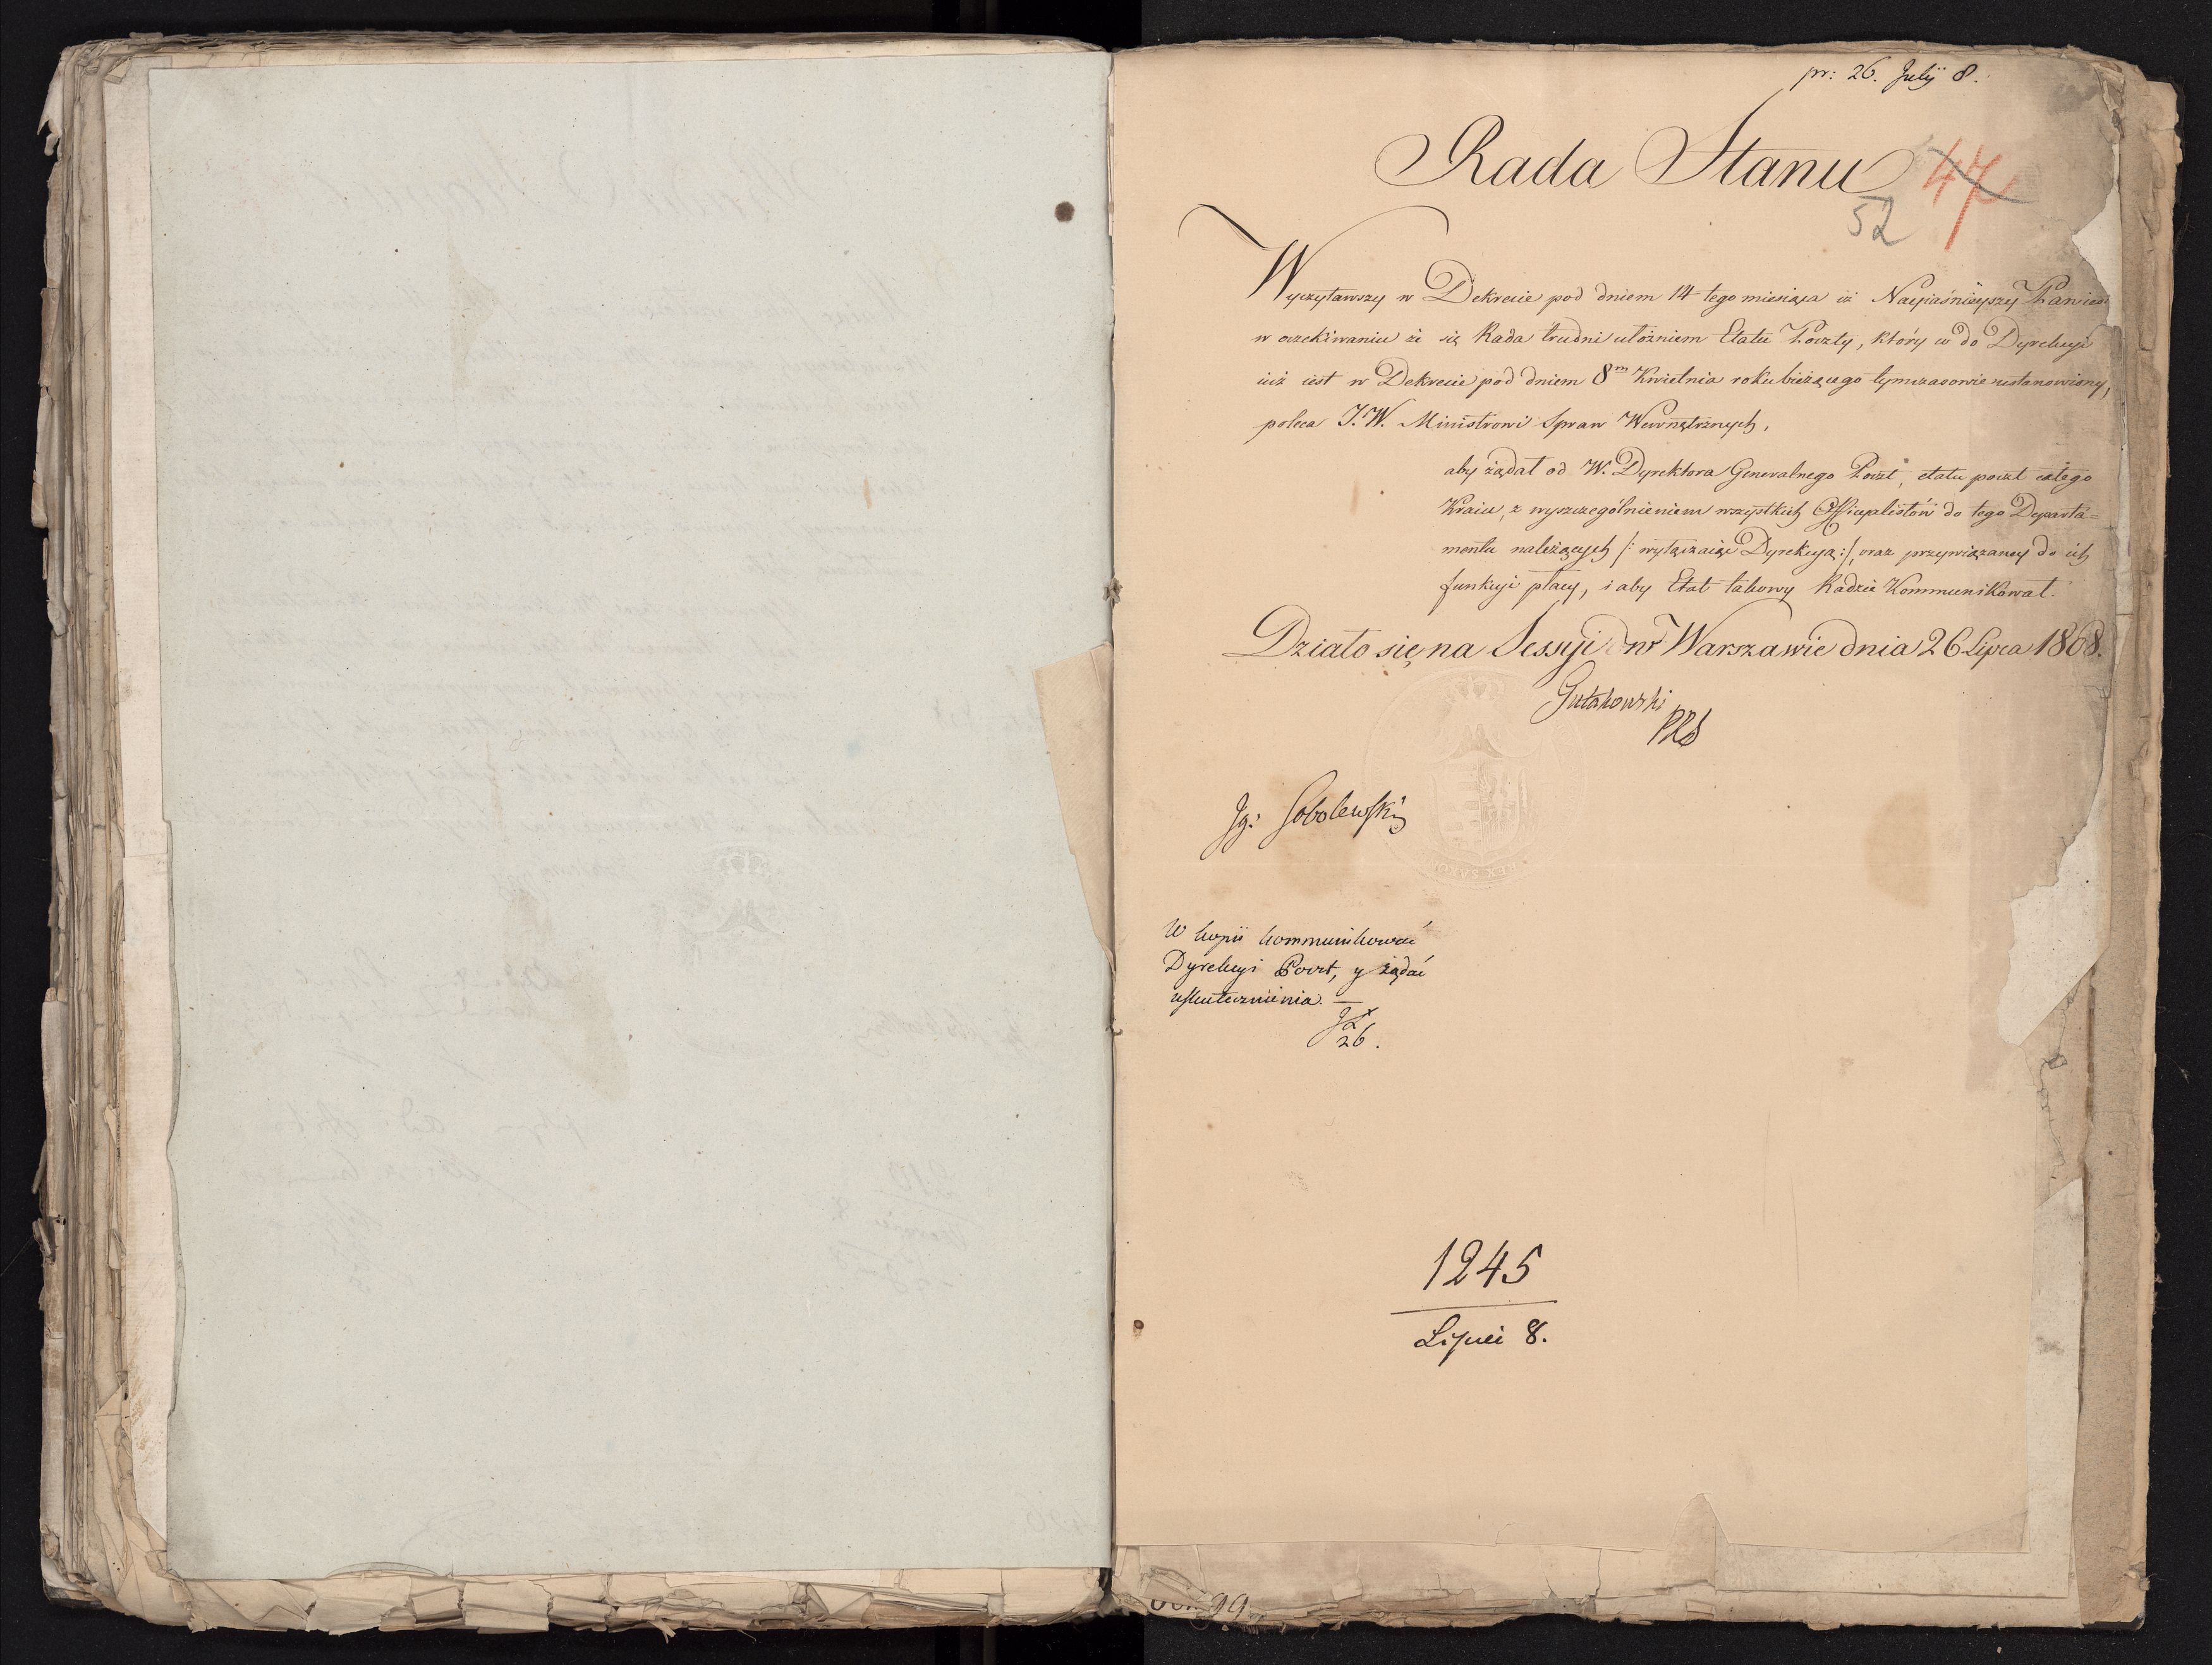 pr: 26. Julÿ 8.
Rada Stanu
47
52
Wyczytawszy w Dekrecie pod dniem 14 tego miesiąca iż Nayiaśnieyszy Pan iest
w oczekiwaniu że się Rada trudni ułożniem Etatu Poczty, który co do Dyrekcyi
iuż iest w Dekrecie pod dniem 8m Kwietnia roku bieżącego tymczasowie ustanowiony,
poleca J.W. Ministrowi Spraw Wewnętrznych,
aby żądał od W. Dyrektora Generalnego Poczt, etatu poczt całego
Kraiu, z wyszczególnieniem wszystkich Officyalistów do tego Departa=
mentu należących /: wyłączaiąc Dyrekcyą :/, oraz przywiązaney do ich
funkcyi płacy, i aby Etat takowy Radzie Kommunikował.
Działo się na Sessyi w Warszawie dnia 26 Lipca 1808.
Gutakowski
PRS
Jg: Sobolewski
W kopii kommunikować
Dyrekcyi Poczt, y żądać
uskutecznienia. —
26.
1245
Lipiec 8.
99